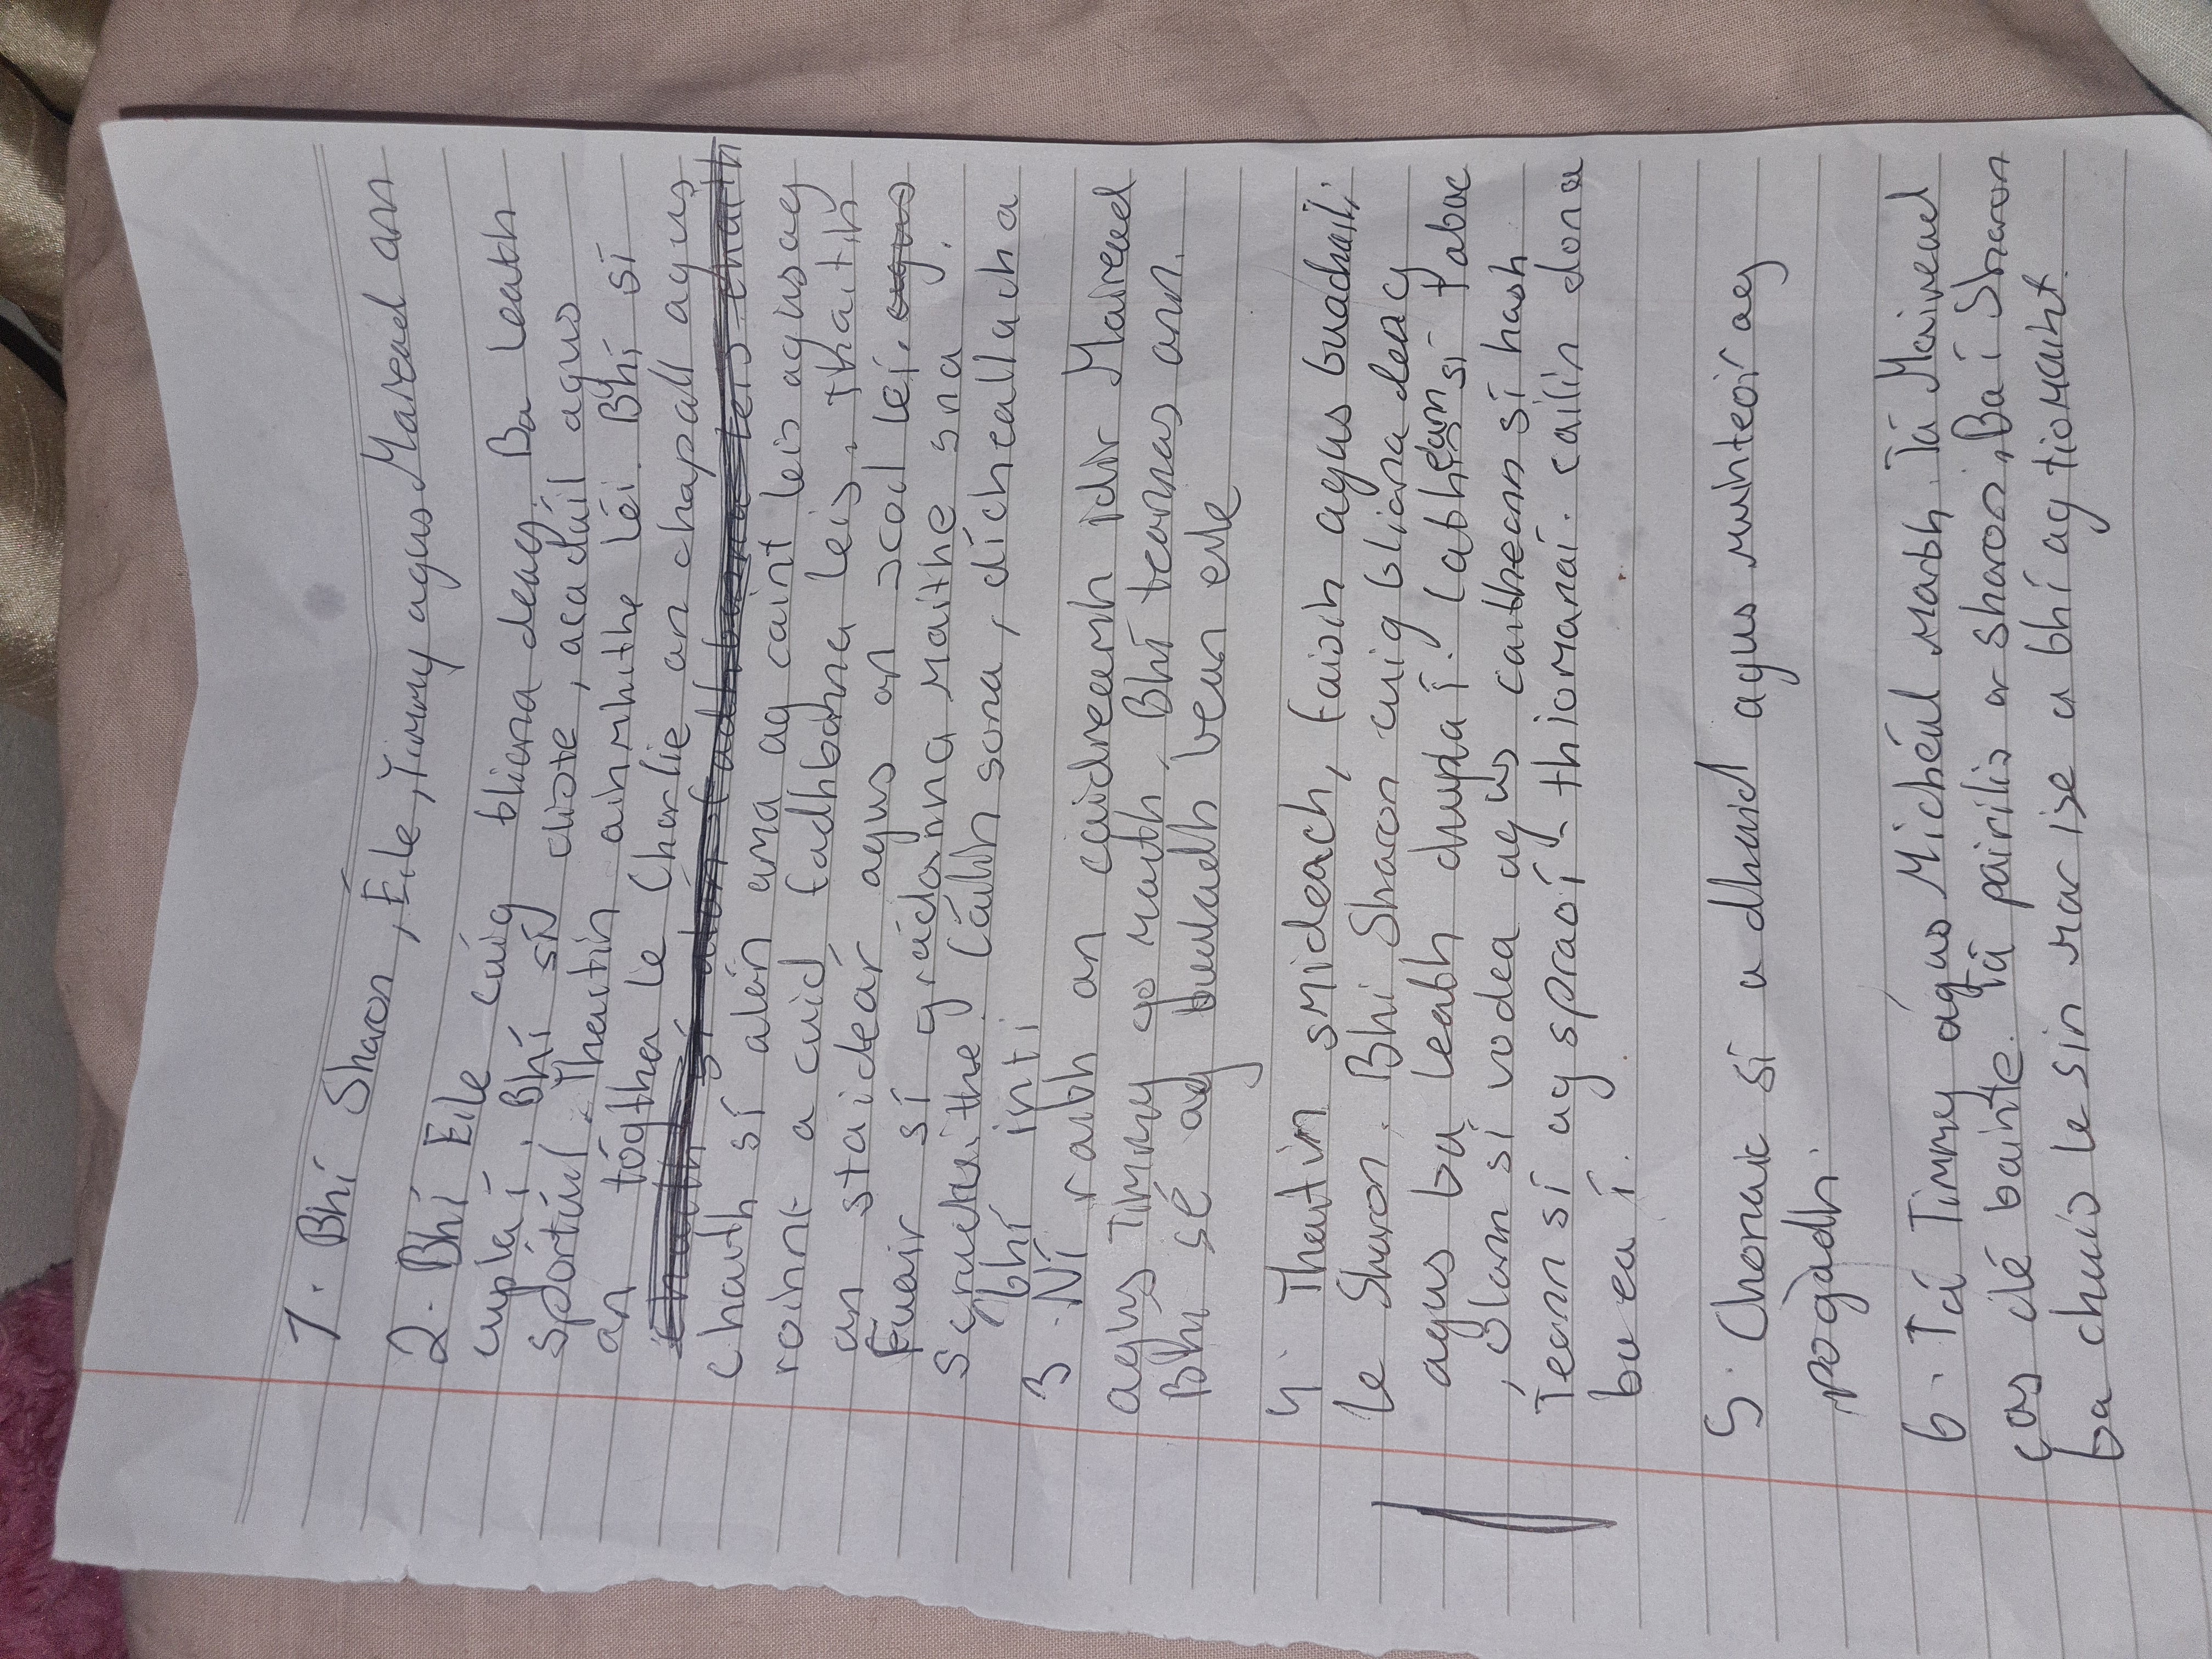 1. Bhí Sharon, Éile, Timmy agus Mairead ann
2. Bhí Eile cúig bliana deag. Ba leath
cupla í. Bhí sí cliste, acadúil agus
spórtúil. Thaitin ainmhithe léi. Bhí sí
an tógtha le Charlie an chapall agus
chaith sí alán ama ag caint leis agus ag
roinnt a cuid fadhbanna leis. Thaitin
an staidéar agus an scoil léi. agus
Fuair sí grádanna maithe sna
scruduithe. Cáilín sona, dícheallach a
bhí inti
3. Ní raibh an caidreamh idir Mairead
agus Timmy go maith. Bhí teannas ann.
Bhí sé ag bualadh bean eile
4. Thaitin smideach, faisin agus buachaillí
le Sharon. Bhi Sharon cuig bliana deag
agus ba leath chupla í. Cabheann sí tabac
, ólann sí vodca agus caitheann sí hash
Teann sí ag spraoí-thiomanaí. cailín dona
ba ea í.
5. Chonaic sí a dhaid agus muinteoir ag
pogadh.
6. Tá Timmy agus Michéul marbh. Tá Mairead
cas dé bainte. Tá pairilis ar sharon. Ba í Sharon
ba chuis le sin mar ise a bhí ag tiomaint.